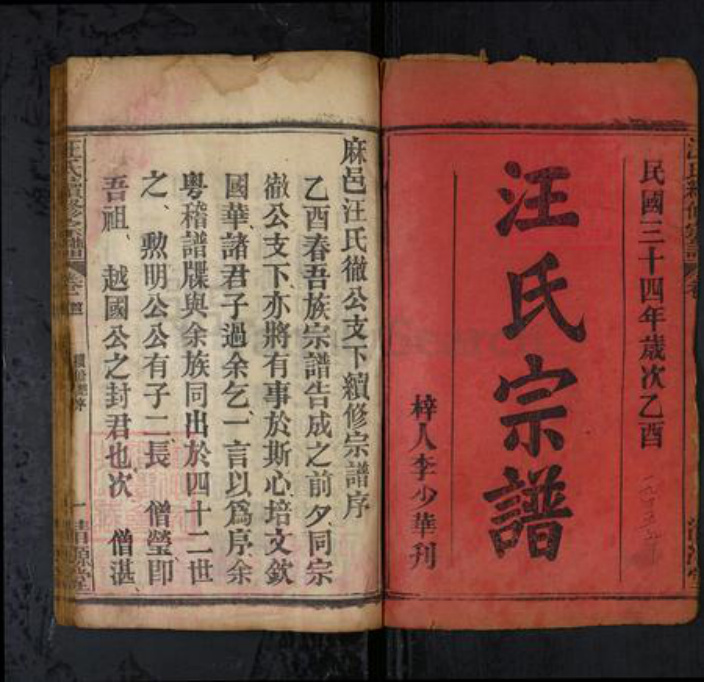 民國三十四年歲次乙酉
汪氏宗譜
梓人李少華刊
麻邑汪氏徹公支下續修宗譜序
乙酉春吾族宗譜告成之前夕同宗
徹公支下亦將有事於斯心培文欽
國華諸君子過余乞一言以爲序余
粵稽譜牒與余族同出於四十二世
之勲明公公有子二長 僧瑩即
吾祖 越國公之封君也次 僧湛
汪氏續修宗譜
清源堂